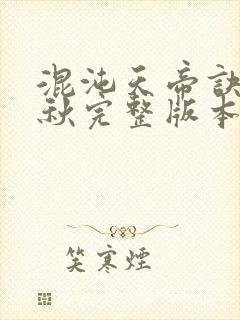 混沌天帝訣
秋完整版本
笑寒煙